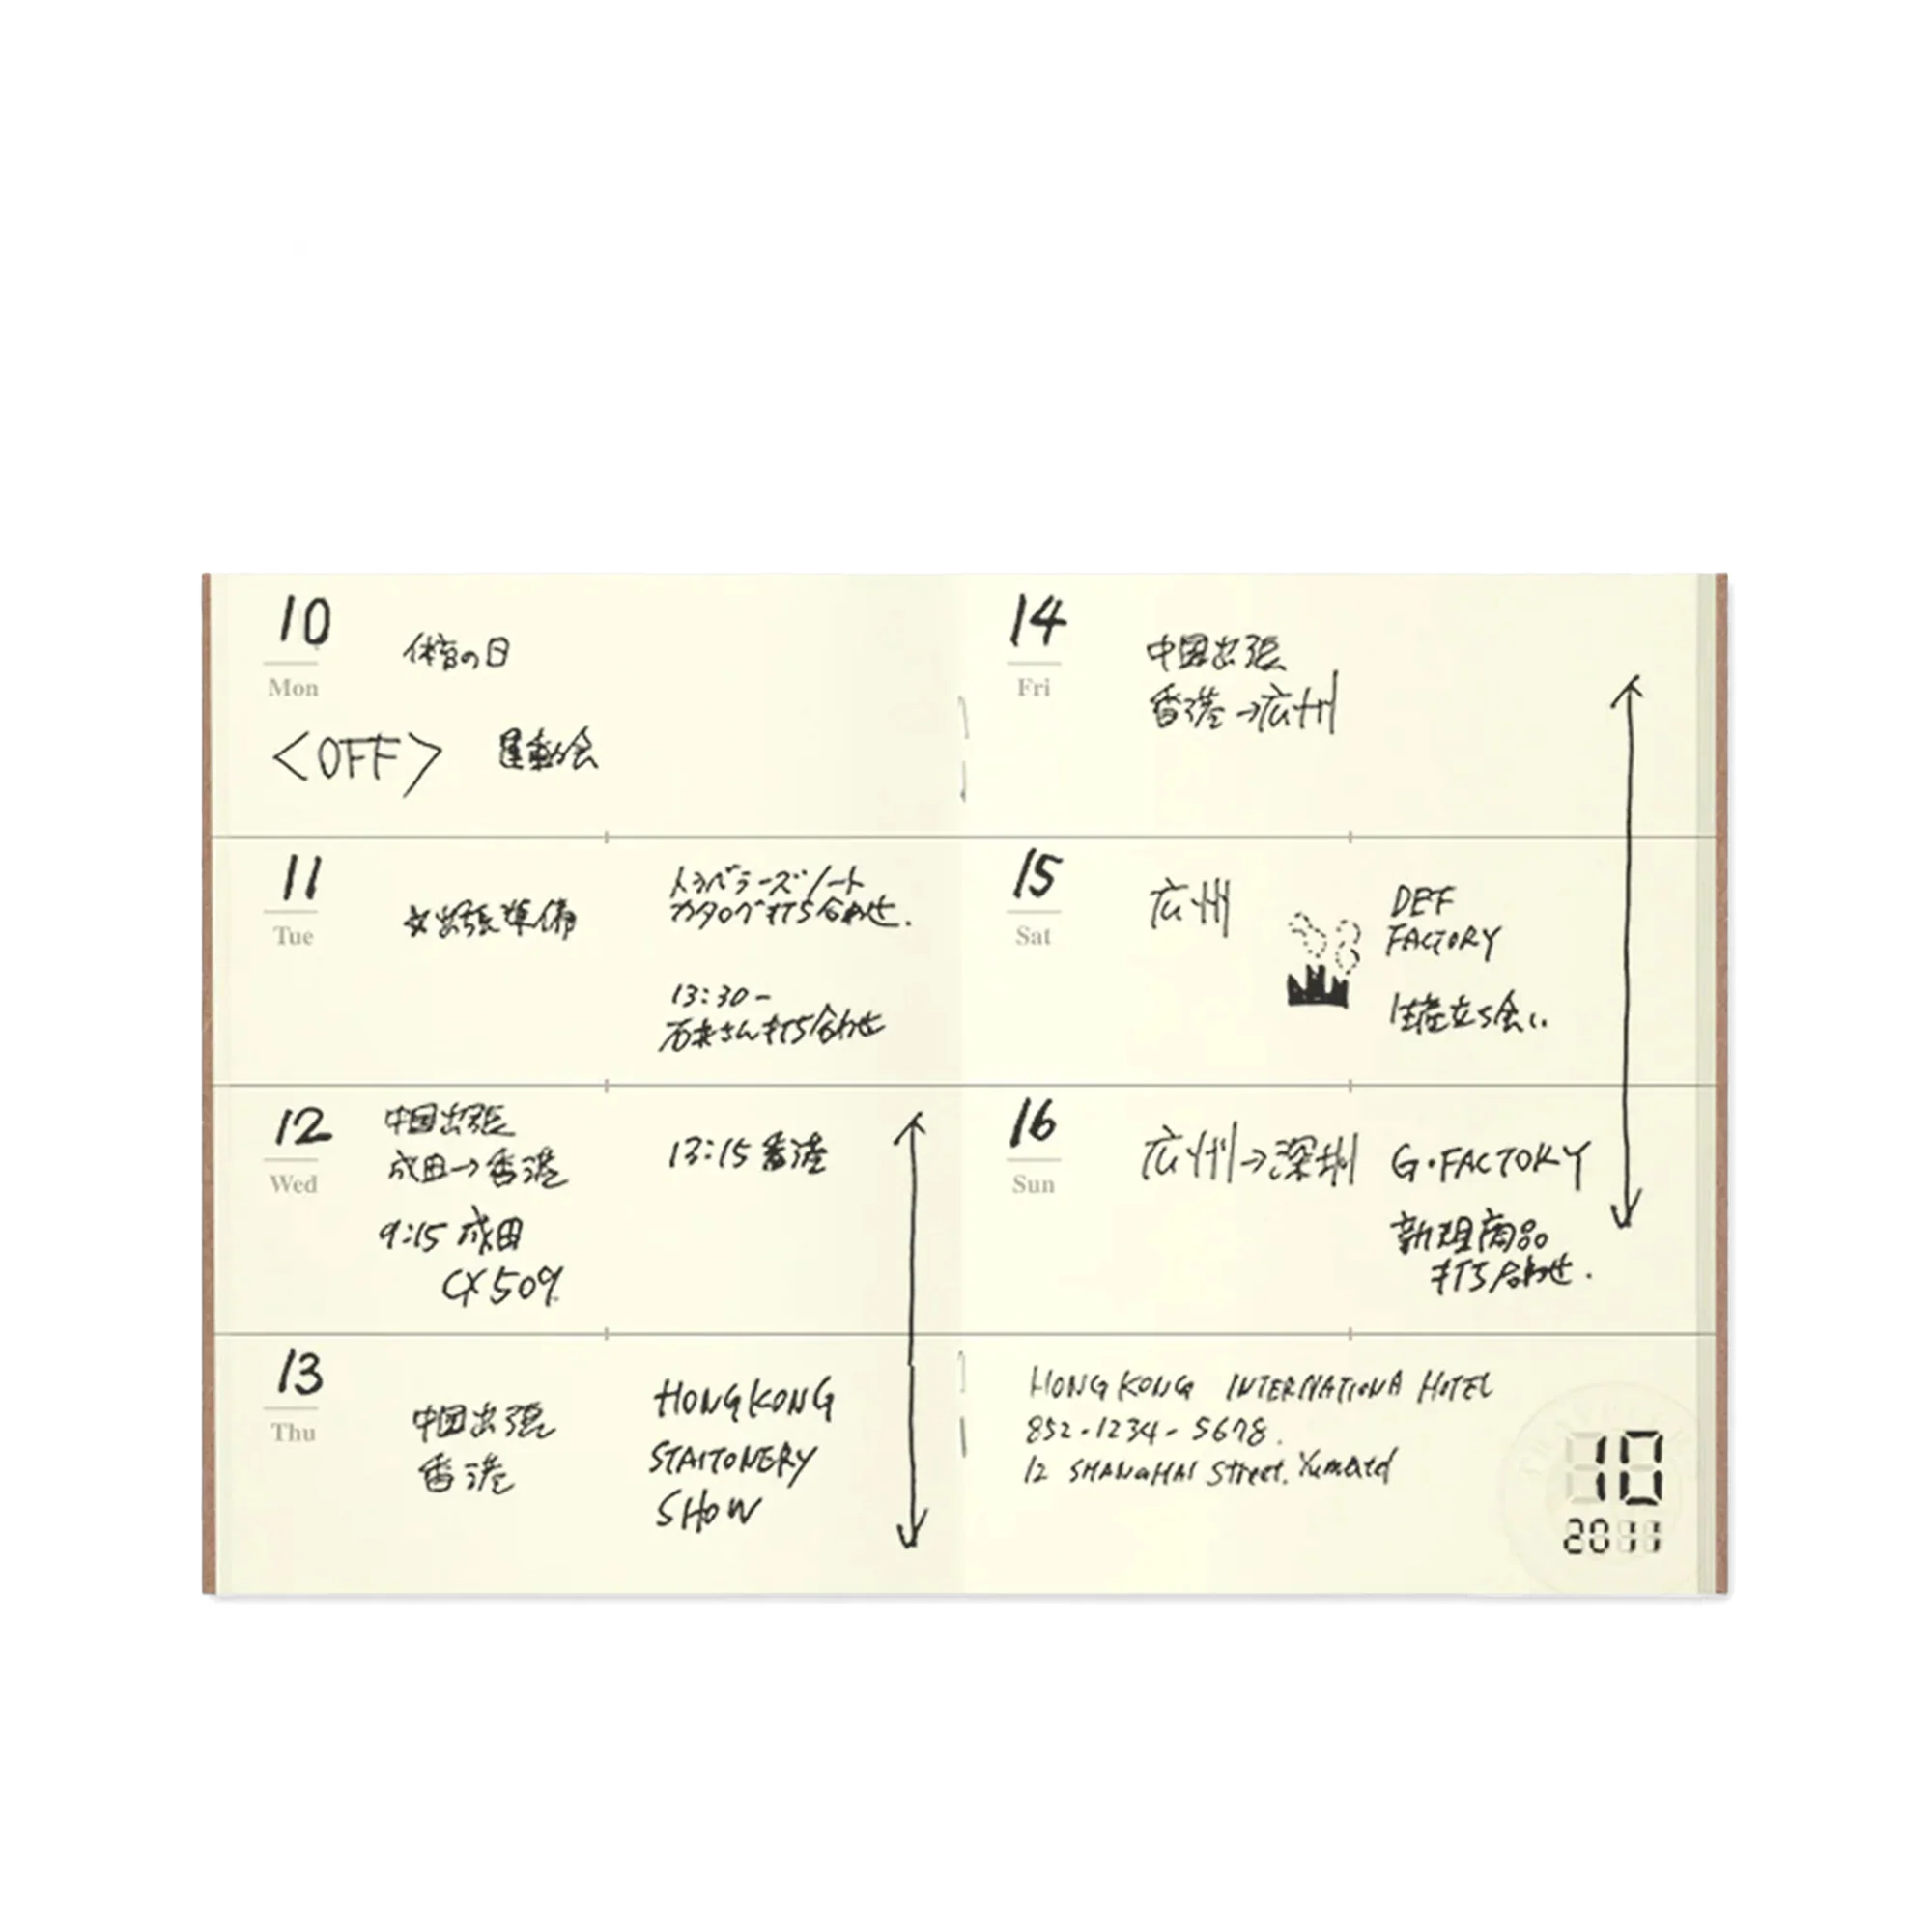 10
Mon
体育の日
<OFF> 運動会
11
Tue
出張準備
トラベラーズノート
カタログ打ち合わせ.
13:30-
さん打ち合わせ
12
Wed
中国出張
成田→香港
9:15 成田
CX509
13:15 香港
13
Thu
中国出張
香港
HONGKONG
STAITONERY
SHOW
14
Fri
中国出張
香港→広州
15
Sat
広州
DEF
FACTORY
生産立ち会い.
16
Sun
広州→深圳
G・FACTORY
新規商品
打ち合わせ.
HONG KONG INTERNATIONA HOTEL
852-1234-5678.
12 SHANGHAI Street.
10
2011